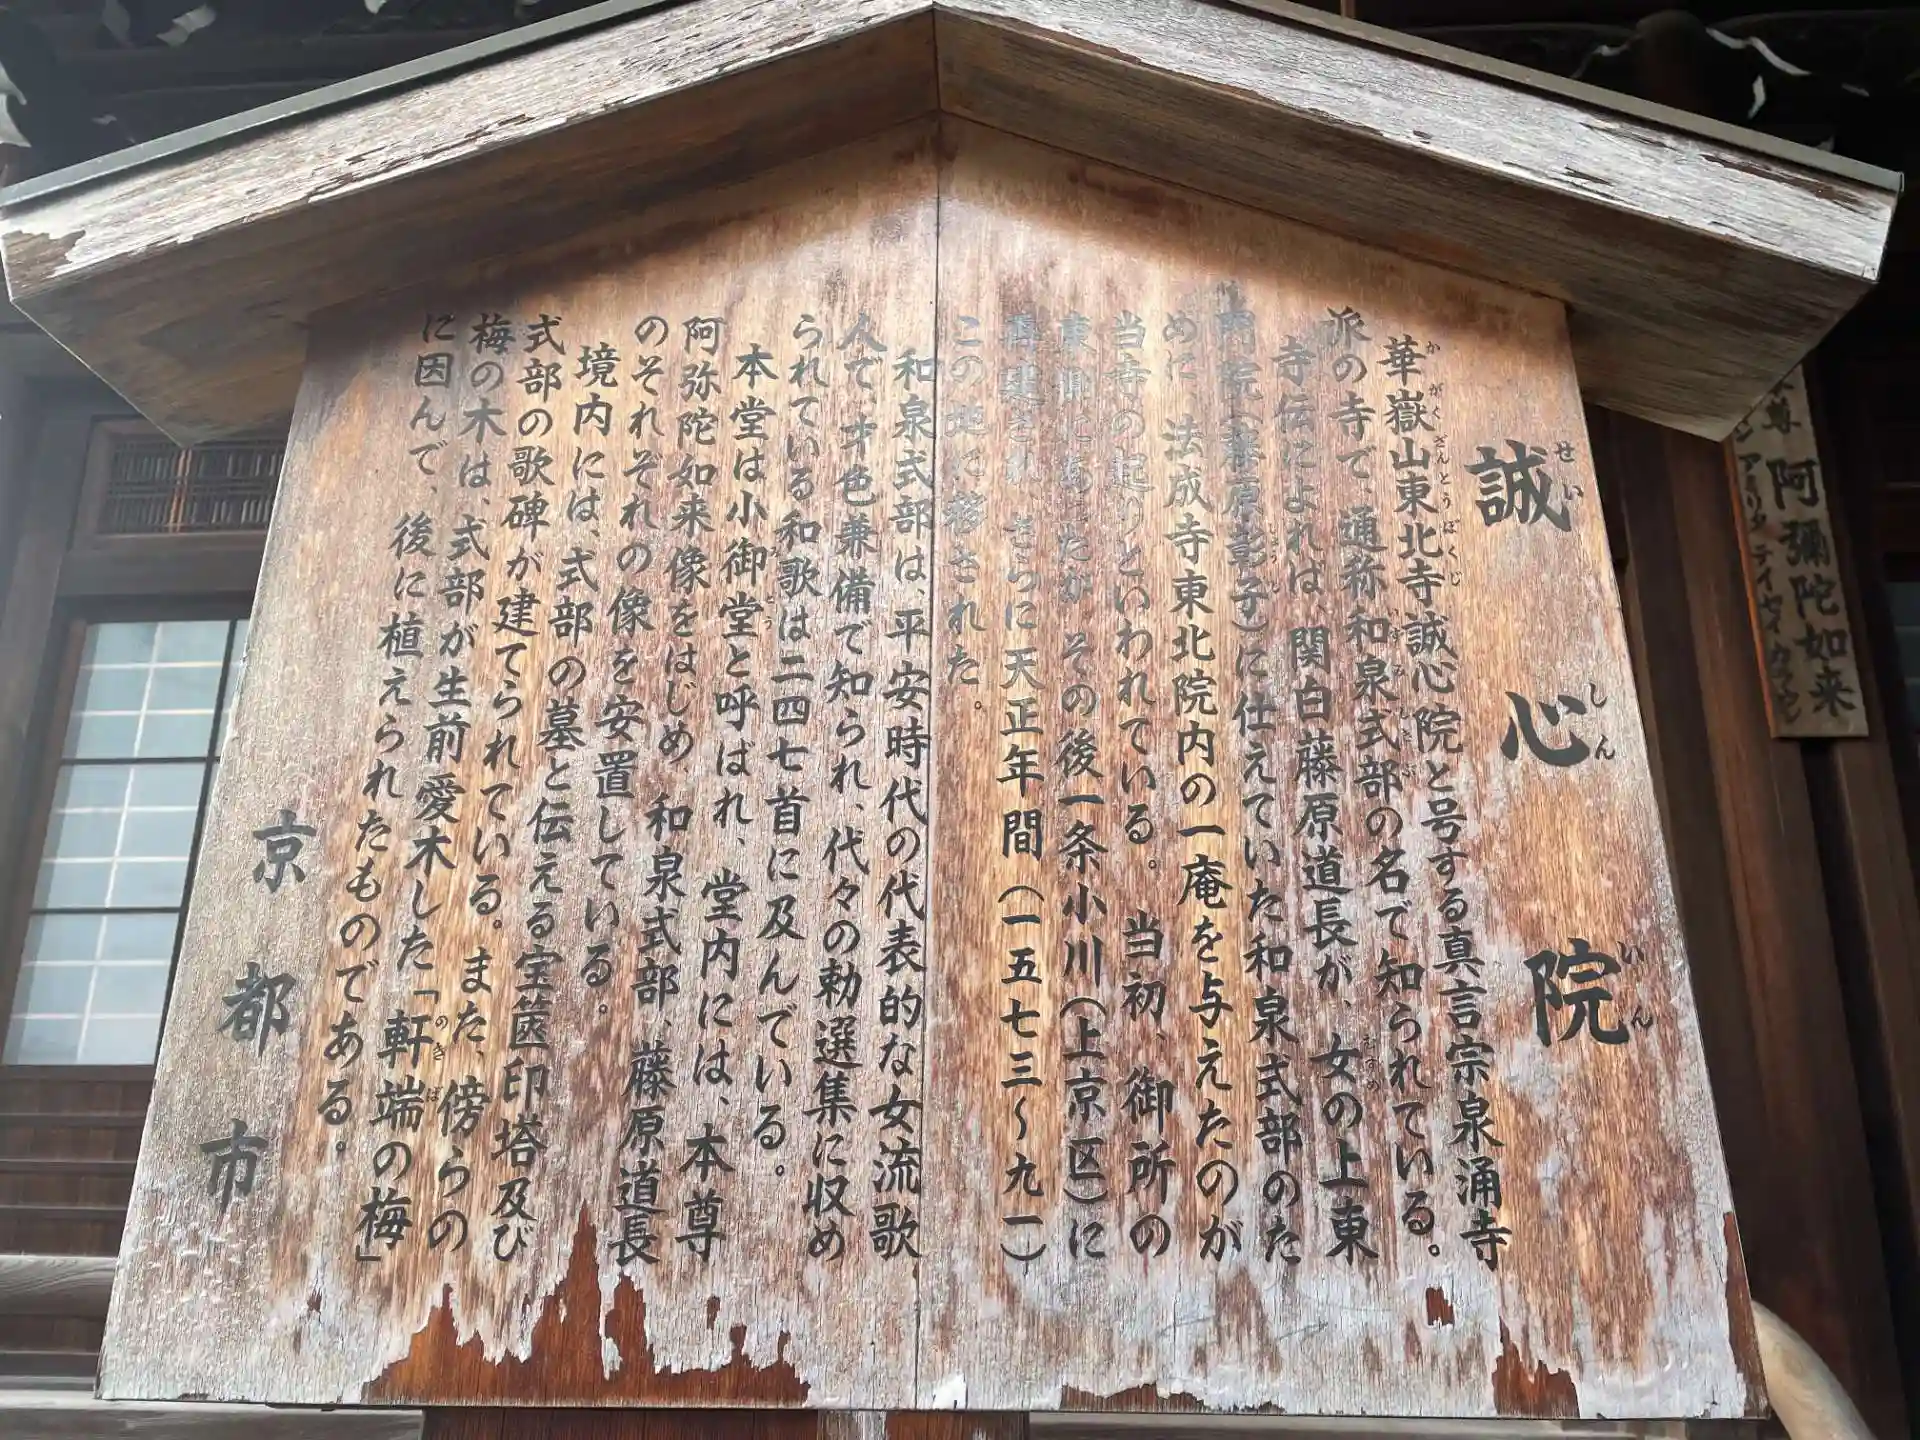 誠心院
せいしんいん
華嶽山東北寺誠心院と号する真言宗泉涌寺
かがくざんとうぼくじ
派の寺で、通称和泉式部の名で知られている。
いずみしきぶ
寺伝によれば、関白藤原道長が、女の上東
むすめ
門院(藤原彰子)に仕えていた和泉式部のた
しょうし
めに、法成寺東北院内の一庵を与えたのが
当寺の起りといわれている。当初、御所の
東側にあったが、その後一条小川(上京区)に
再建され、さらに天正年間(一五七三〜九一)
この地に移された。
和泉式部は、平安時代の代表的な女流歌
人で、才色兼備で知られ、代々の勅選集に収め
られている和歌は二四七首に及んでいる。
本堂は小御堂と呼ばれ、堂内には、本尊
みどう
阿弥陀如来像をはじめ、和泉式部、藤原道長
のそれぞれの像を安置している。
境内には、式部の墓と伝える宝篋印塔及び
式部の歌碑が建てられている。また、傍らの
梅の木は、式部が生前愛木した「軒端の梅」
のきば
に因んで、後に植えられたものである。
京都市
尊 阿彌陀如来